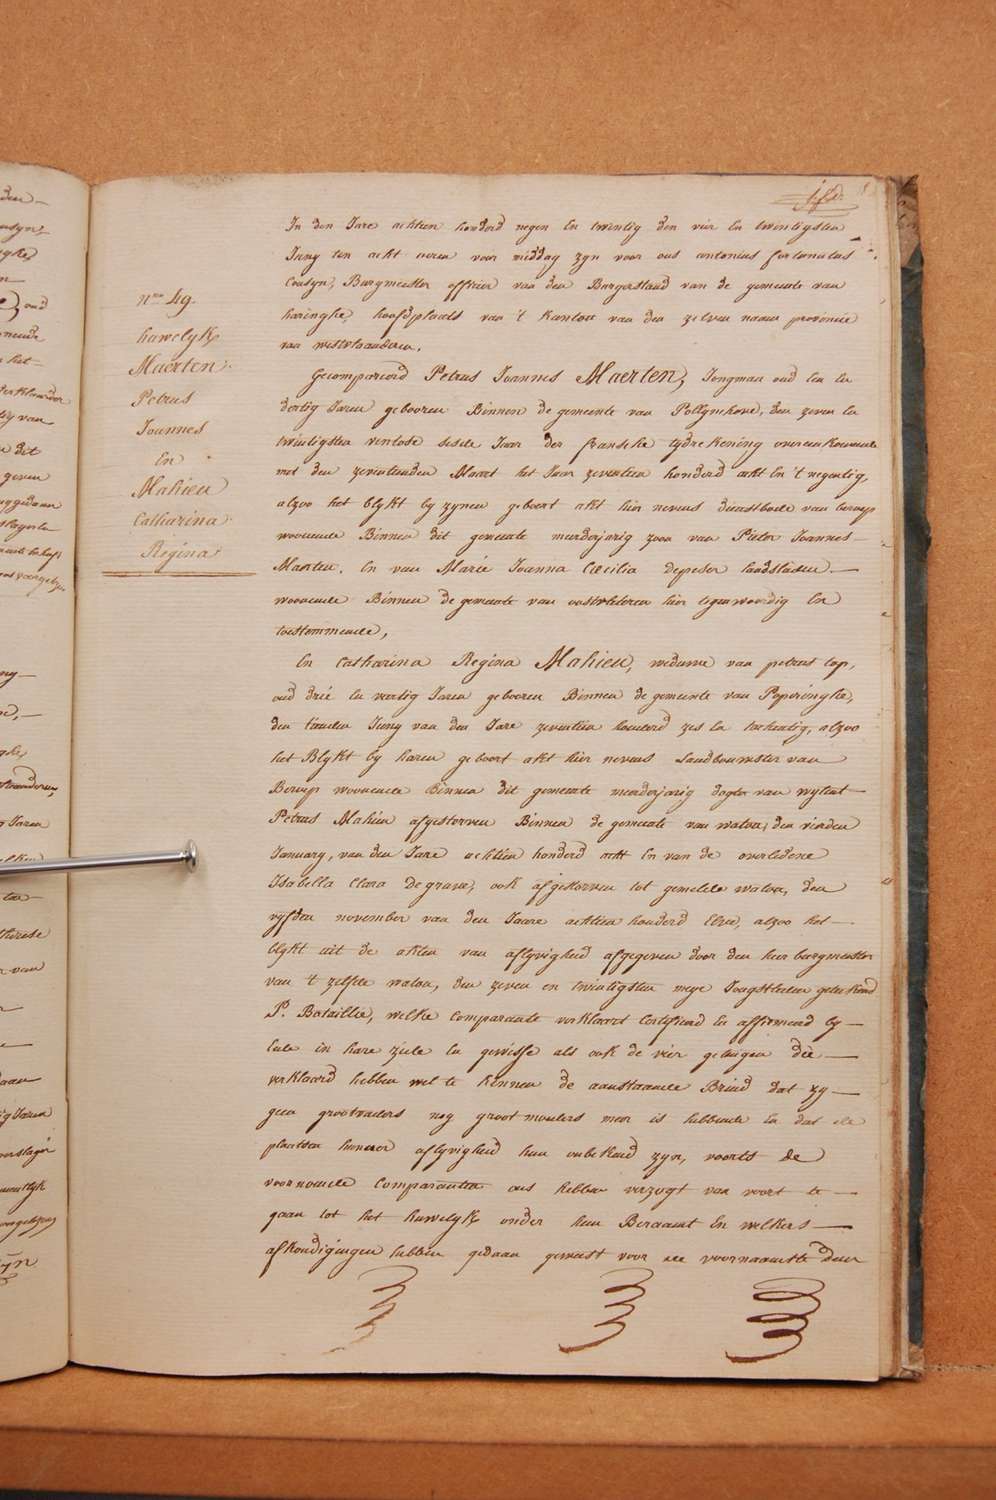 nro 49.
huwelyk
Maerten
Petrus
Joannes
En
Mahieu
Catharina
Regina
In den Jare achtien honderd negen En twintig den vier En twintigsten
Juny ten acht uren voor middag zyn voor ons antonius fortunatus
Cousyn, Burgmeester officier van den Burgerstand van de gemeente van
haringhe, hoofdplaets van 't kanton van den zelven naam provincie
van westvlaanderen.
Gecompareerd Petrus Joannes Maerten, Jongman oud Een En
dertig Jaren gebooren Binnen de gemeente van Pollynkhove, den zeven En
twintigsten ventose seste Jaar der fransche tydrekening overeenkomende
met den zeventienden Maart het Jaar zeventien honderd acht En 't negentig,
alzoo het blykt by zynen geboort akt hier nevens dienstbode van beroep
woonende Binnen dit gemeente meerderjarig zoon van Pieter Joannes
Maerten. En van Marie Joanna Cecilia depeder landslieden
woonende Binnen de gemeente van oostvleteren hier tegenwoordig En
toestemmende,
En Catharina Regina Mahieu, weduwe van petrus top,
oud drie En veertig Jaren gebooren Binnen de gemeente van Poperinghe,
den tienden Juny van den Jare zeventien honderd zes En tachentig, alzoo
het Blykt by haren geboort akt hier nevens Landbouwster van
Beroep woonende Binnen dit gemeente meerderjarig dogter van wylent
Petrus Mahieu afgestorven Binnen de gemeente van watou, den vierden
January, van den Jare achtien honderd acht En van de overledene
Isabella Clara Degrave, ook afgestorven tot gemelde watou, den
vyfden november van den Jaare achtien honderd Elve, alzoo het
blykt uit de akten van aflyvigheid afgegeven door den heer burgmeester
van 't zelfste watou, den zeven en twintigsten meye Joagstleden geteekend
P. Bataillie, welke Comparante verklaert Certifieerd En affirmeerd by
Eede in hare ziele En gewisse als ook de vier getuigen die
verklaerd hebben wel te kennen de aanstaande Bruid dat zy
geen grootvaders nog grootmoeders meer is hebbende En dat de
plaetsen hunner aflyvigheid hun onbekend zyn, voorts de
voornoemde Comparanten ons hebben verzogt van voort te
gaan tot het huwelyk onder hun Beraamt En welkers
afkondigingen hebben gedaan geweest voor de voornaamste deur